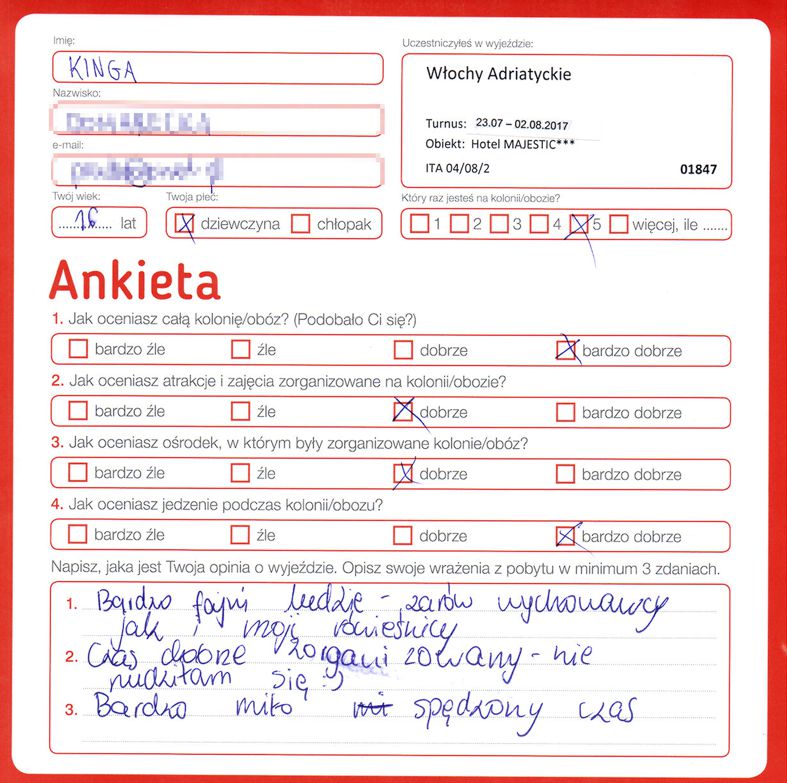 Imię:
KINGA
Nazwisko:
e-mail:
Twój wiek:
16 lat
Twoja płeć:
dziewczyna chłopak
Uczestniczyłeś w wyjeździe:
Włochy Adriatyckie
Turnus: 23.07 – 02.08.2017
Obiekt: Hotel MAJESTIC***
ITA 04/08/2 01847
Który raz jesteś na kolonii/obozie?
1 2 3 4 5 więcej, ile .......
Ankieta
1. Jak oceniasz całą kolonię/obóz? (Podobało Ci się?)
bardzo źle źle dobrze bardzo dobrze
2. Jak oceniasz atrakcje i zajęcia zorganizowane na kolonii/obozie?
bardzo źle źle dobrze bardzo dobrze
3. Jak oceniasz ośrodek, w którym były zorganizowane kolonie/obóz?
bardzo źle źle dobrze bardzo dobrze
4. Jak oceniasz jedzenie podczas kolonii/obozu?
bardzo źle źle dobrze bardzo dobrze
Napisz, jaka jest Twoja opinia o wyjeździe. Opisz swoje wrażenia z pobytu w minimum 3 zdaniach.
1. Bardzo fajni ludzie - zarów wychowawcy
jak i moji rówieśnicy
2. Czas dobrze zorganizowany - nie
nudziłam się :)
3. Bardzo miło spędzony czas